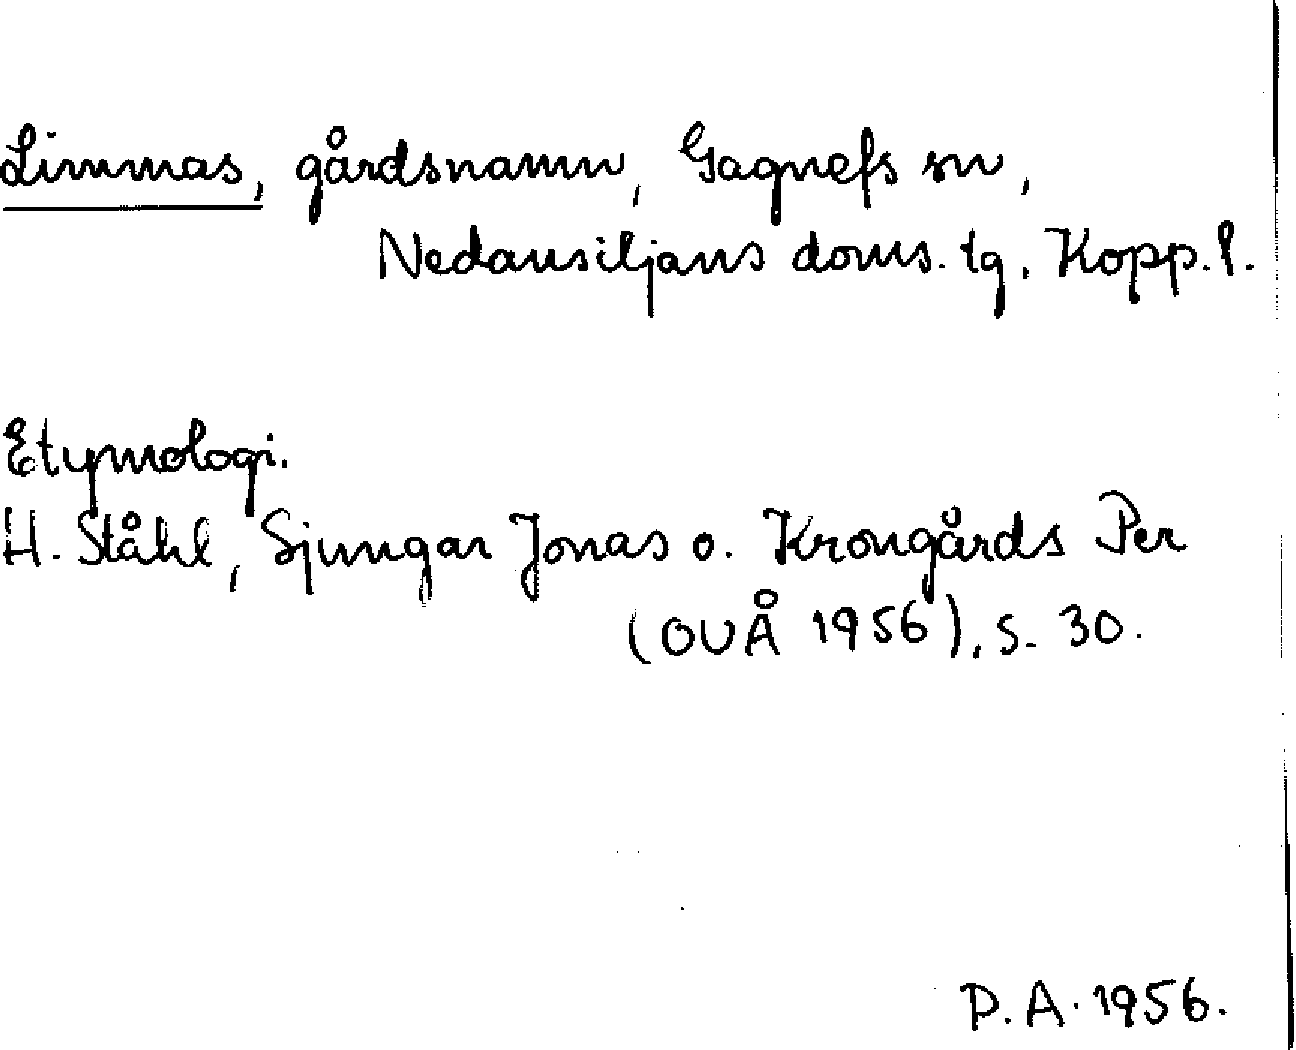 Limmas, gårdsnamn, Gagnefs sn,
Nedansiljans doms. tg, Kopp. l.
Etymologi.
H. Ståhl, Sjungar Jonas o. Krongårds Per
(OUÅ 1956), s. 30.
P. A. 1956.